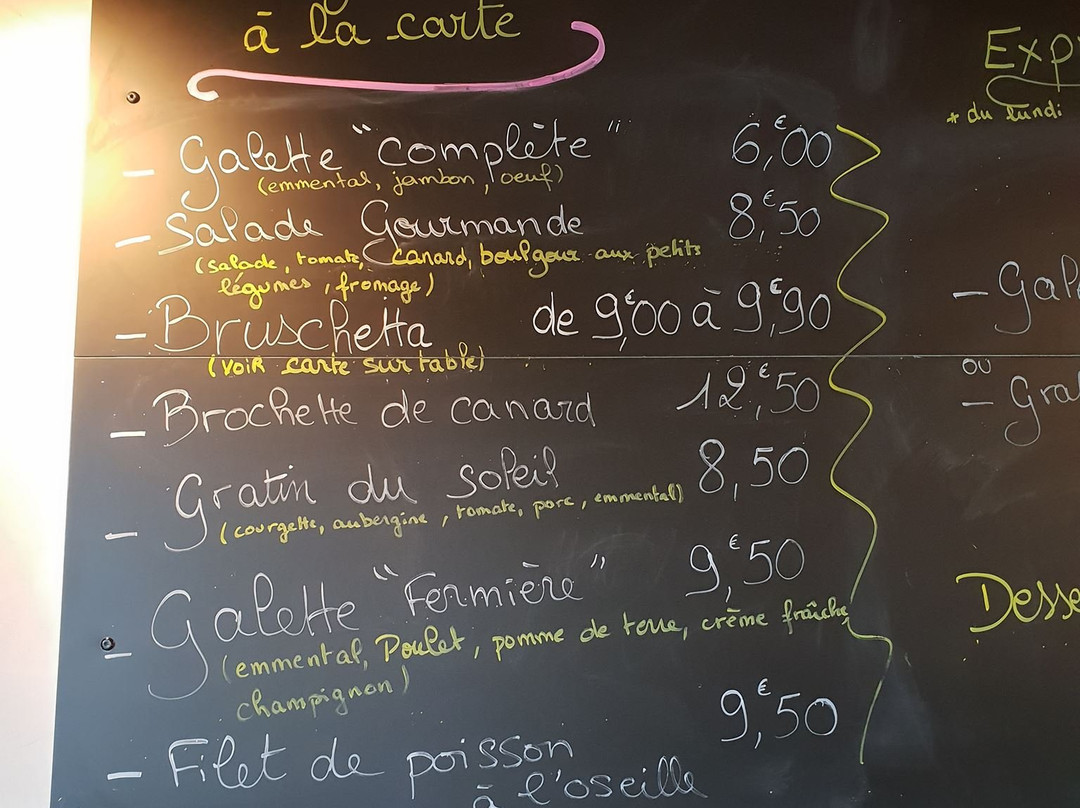 à la carte
- Galette "complète" 6,€00
(emmental, jambon, oeuf)
- Salade Gourmande 8,€50
(salade, tomate, canard, boulgour aux petits
légumes, fromage)
- Bruschetta de 9,€00 à 9,€90
(VOIR carte sur table)
- Brochette de canard 12,€50
- Gratin du soleil 8,50
(courgette, aubergine, tomate, porc, emmental)
- Galette "Fermière" 9,€50
(emmental, Poulet, pomme de terre, crème fraîche,
champignon)
- Filet de poisson 9,€50
à l'oseille
* du lundi
ou